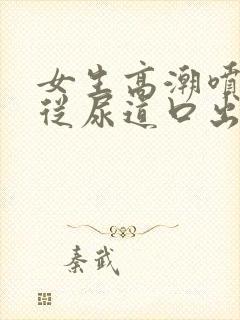 女生高潮喷
从尿道口出
秦武